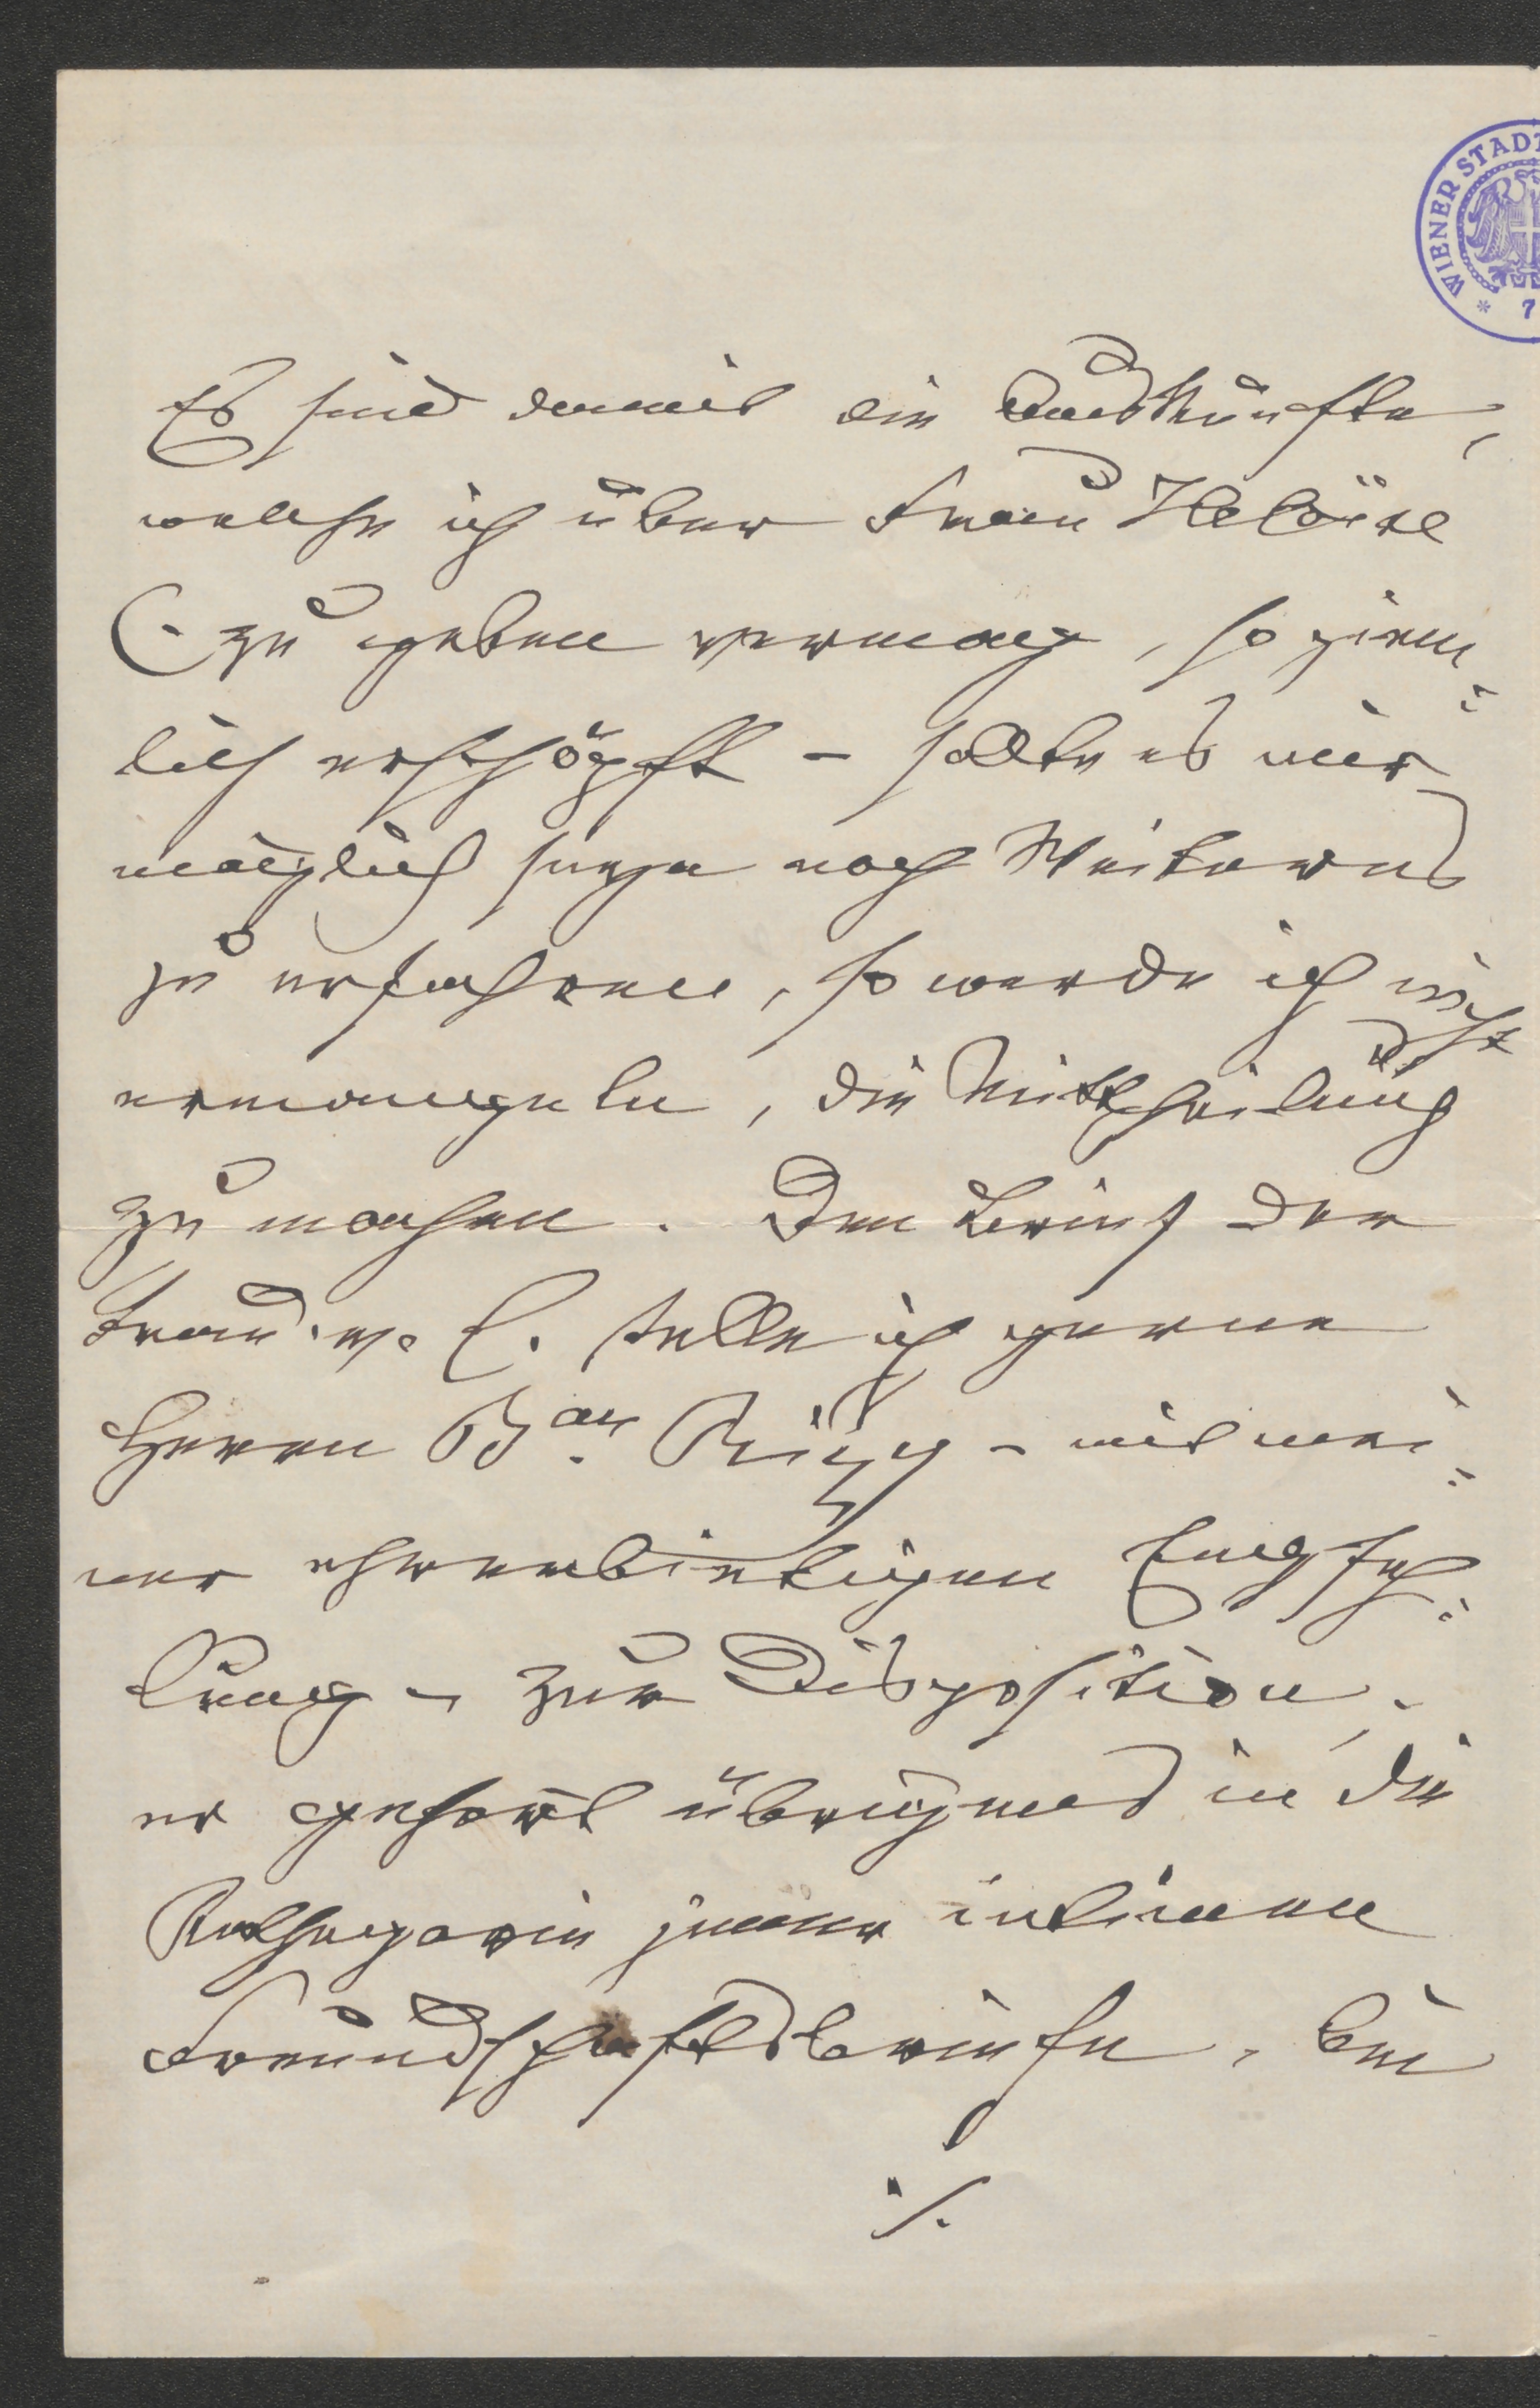 WIENER STADT
* 7
Es sind damit die Auskünfte,
welche ich über Frau Heloïse
C. zu geben vermag, so ziem=
lich erschöpft – sollte es mir
möglich seyn noch Weiteres
zu erfahren, so werde ich nicht
ermangeln, die Mittheilung
zu machen. Den Brief der
Frau v. C. stelle ich gerne
Herrn Bar. Rizy – mit mei=
ner ehrerbietigen Empfeh=
lung – zur Disposition,
er gehört übrigens in die
Kathegorie jener intimen
Freundschaftsbriefe, bei
./.